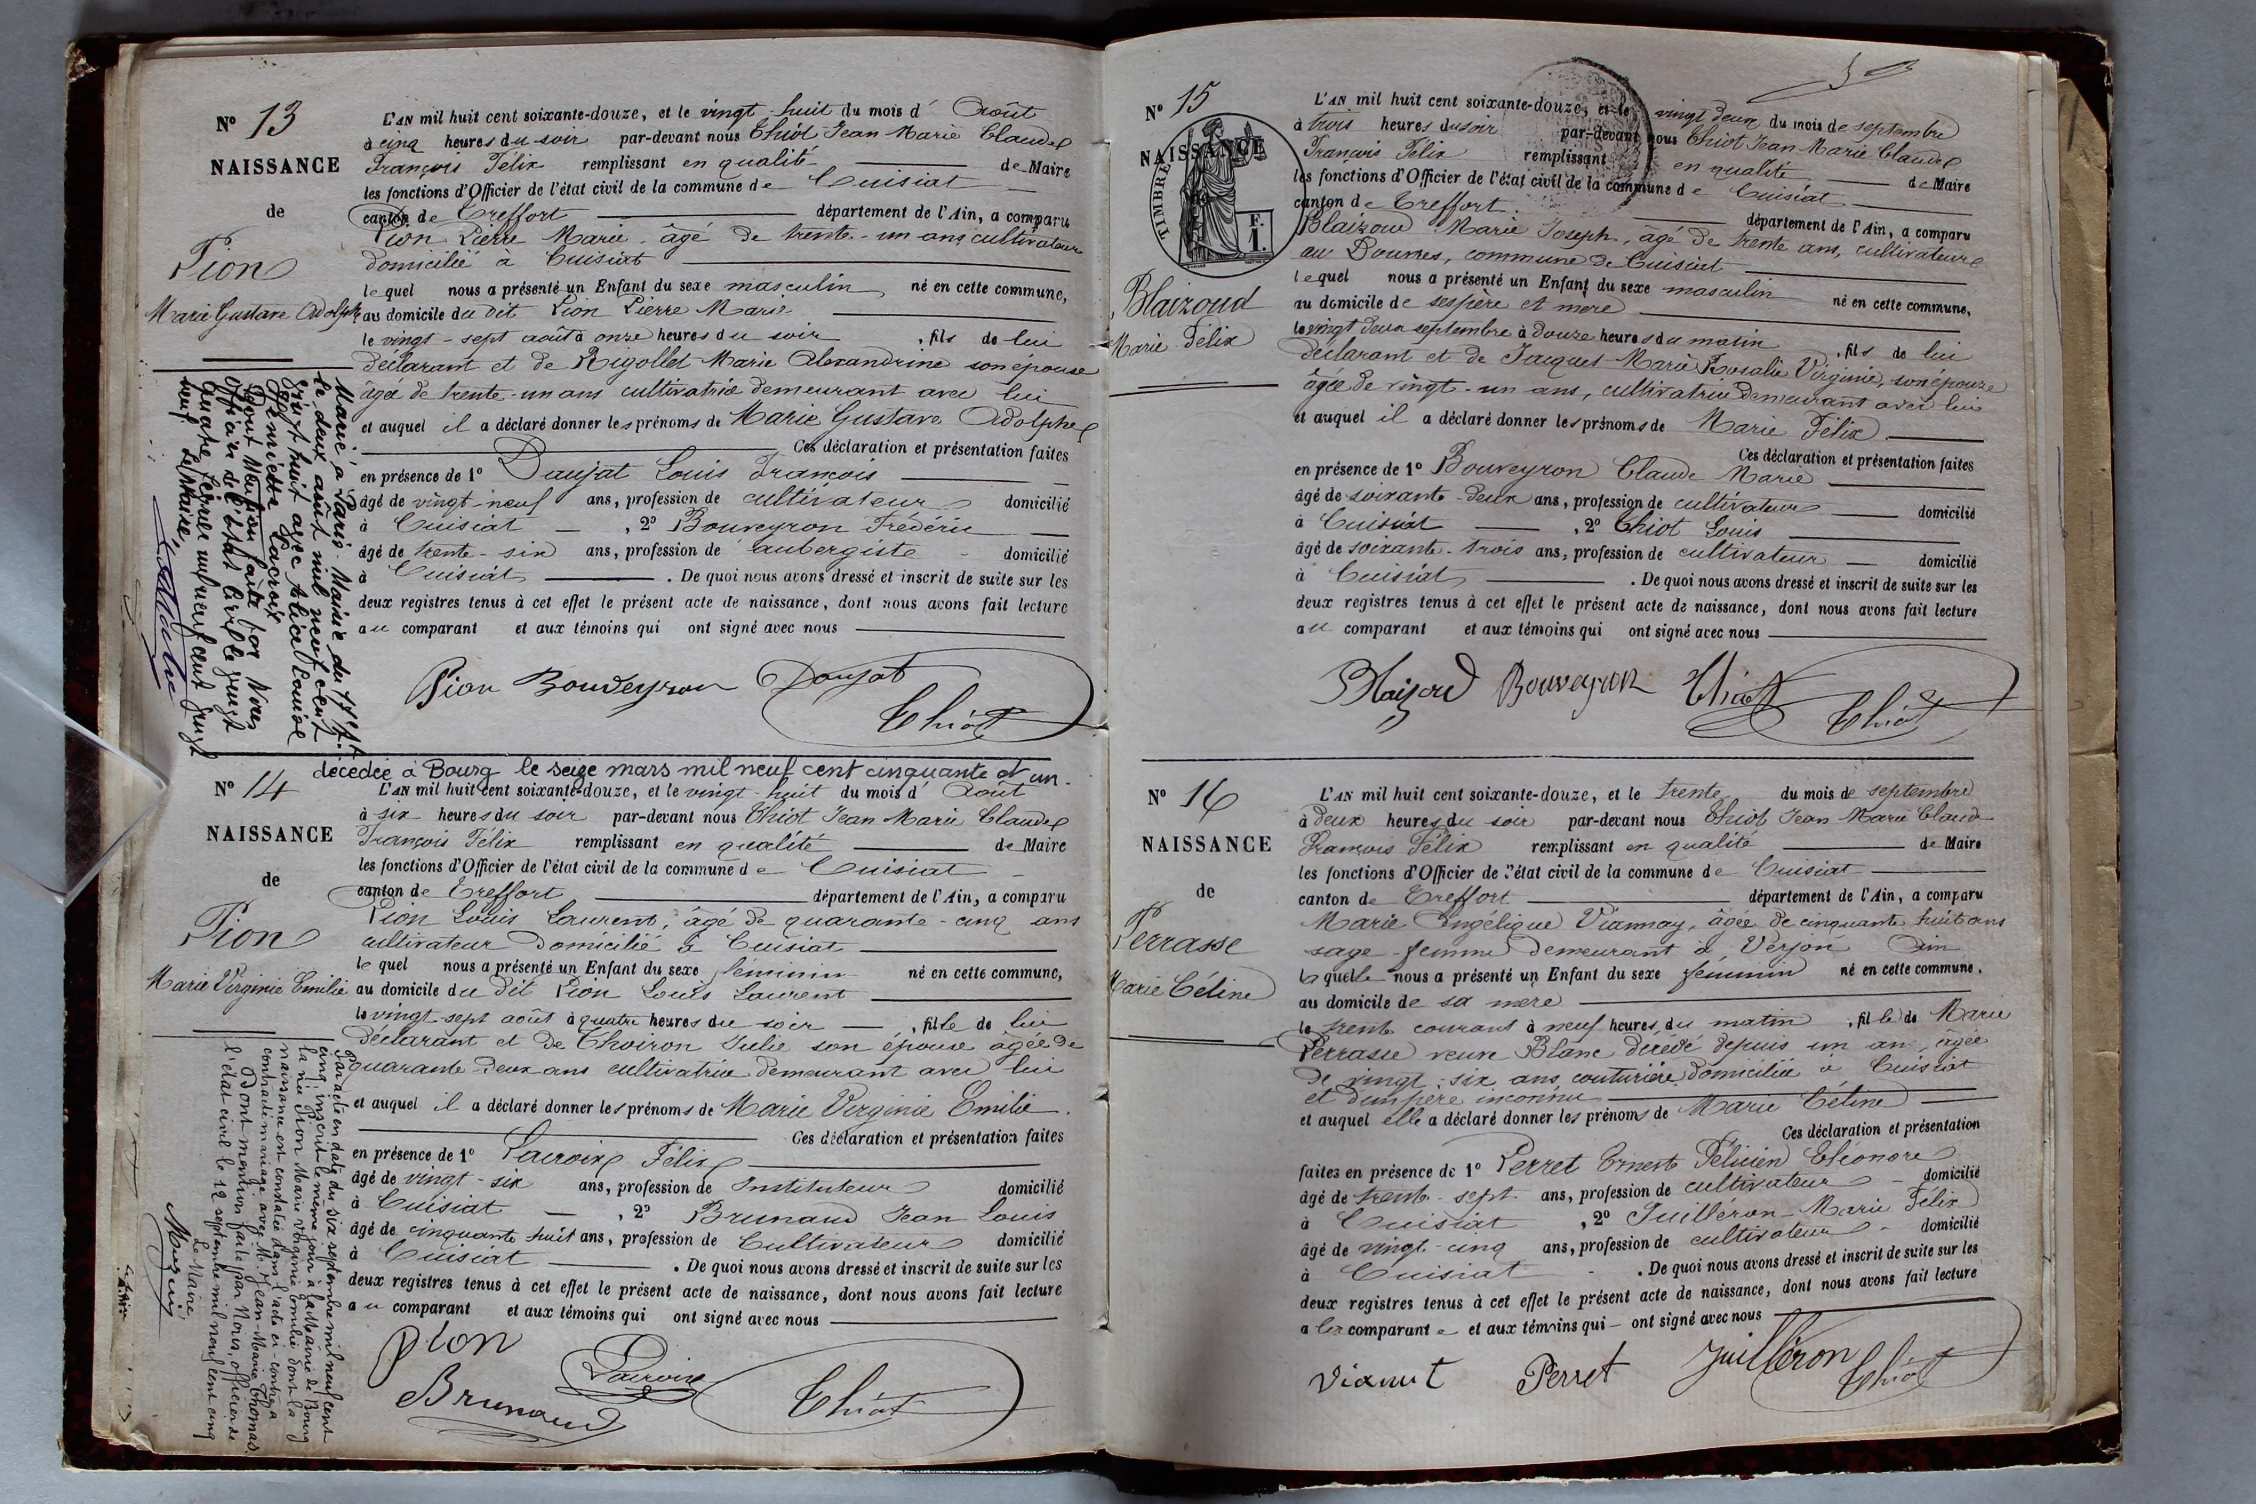 Nº 13
NAISSANCE
de
Pion
Marie Gustave Adolphe
L'AN mil huit cent soixante-douze, et le vingt-huit du mois d' Août
à cinq heures du soir par-devant nous Thiot Jean Marie Claude
François Félix remplissant en qualité de Maire
les fonctions d'Officier de l'état civil de la commune de Cuisiat
canton de Treffort département de l'Ain, a comparu
Pion Pierre Marie, âgé de trente-un ans cultivateur
domicilié à Cuisiat
lequel nous a présenté un Enfant du sexe masculin né en cette commune,
au domicile du dit Pion Pierre Marie
le vingt-sept août à onze heures du soir, fils de lui
déclarant et de Rigollet Marie Alexandrine son épouse
âgée de trente-un ans cultivatrice demeurant avec lui
et auquel il a déclaré donner les prénoms de Marie Gustave Adolphe
Ces déclaration et présentation faites
en présence de 1º Daujat Louis François
âgé de vingt-neuf ans, profession de cultivateur domicilié
à Cuisiat, 2º Bouveyron Frédéric
âgé de trente-six ans, profession de aubergiste domicilié
à Cuisiat. De quoi nous avons dressé et inscrit de suite sur les
deux registres tenus à cet effet le présent acte de naissance, dont nous avons fait lecture
au comparant et aux témoins qui ont signé avec nous
Pion Bouveyron Daujat
Thiot
Marié à Paris Mairie du 17e Art
le deux août mil neuf cent
vingt huit avec Alice Louise
Eugémiette Lacroix
Dont Mention faite par Nous
Officier de l'état Civil le vingt
quatre février mil neuf cent vingt
neuf.
Nº 14
NAISSANCE
de
Pion
Marie Virginie Emilie
décedée à Bourg le seize mars mil neuf cent cinquante et un.
L'AN mil huit cent soixante-douze, et le vingt-huit du mois d' Août
à six heures du soir par-devant nous Thiot Jean Marie Claude
François Félix remplissant en qualité de Maire
les fonctions d'Officier de l'état civil de la commune de Cuisiat
canton de Treffort département de l'Ain, a comparu
Pion Louis Laurent, âgé de quarante-cinq ans
cultivateur domicilié à Cuisiat
lequel nous a présenté un Enfant du sexe féminin né en cette commune,
au domicile du dit Pion Louis Laurent
le vingt-sept août à quatre heures du soir, fille de lui
déclarant et de Thoiron Julie son épouse âgée de
quarante-deux ans cultivatrice demeurant avec lui
et auquel il a déclaré donner les prénoms de Marie Virginie Emilie.
Ces déclaration et présentation faites
en présence de 1º Lacroix Félix
âgé de vingt-six ans, profession de Instituteur domicilié
à Cuisiat, 2º Brunaud Jean Louis
âgé de cinquante huit ans, profession de Cultivateur domicilié
à Cuisiat. De quoi nous avons dressé et inscrit de suite sur les
deux registres tenus à cet effet le présent acte de naissance, dont nous avons fait lecture
au comparant et aux témoins qui ont signé avec nous
Pion
Lacroix
Brunaud
Thiot
Par acte en date du six septembre mil neuf cent
cinq inscrit le même jour à la Mairie de Bourg
la née Pion Marie Virginie Emilie dont la
naissance est constatée dans l'acte ci-contre a
contracté mariage avec M. Jean-Marie Thomas.
Dont mention faite par Nous, officier de
l'état civil le 12 septembre mil neuf cent cinq
Le Maire
Nº 15
NAISSANCE
TIMBRE
F.
1.
Blaizoud
Marie Félix
L'AN mil huit cent soixante-douze, et le vingt deux du mois de septembre
à trois heures du soir par-devant nous Thiot Jean Marie Claude
François Félix remplissant en qualité de Maire
les fonctions d'Officier de l'état civil de la commune de Cuisiat
canton de Treffort département de l'Ain, a comparu
Blaizoud Marie Joseph, âgé de trente ans, cultivateur
au Dournes, commune de Cuisiat
lequel nous a présenté un Enfant du sexe masculin né en cette commune,
au domicile de ses père et mère
le vingt deux septembre à douze heures du matin, fils de lui
déclarant et de Jacquet Marie Rosalie Virginie, son épouse
âgée de vingt-un ans, cultivatrice demeurant avec lui
et auquel il a déclaré donner les prénoms de Marie Félix
Ces déclaration et présentation faites
en présence de 1º Bouveyron Claude Marie
âgé de soixante-deux ans, profession de cultivateur domicilié
à Cuisiat, 2º Thiot Louis
âgé de soixante-trois ans, profession de cultivateur domicilié
à Cuisiat. De quoi nous avons dressé et inscrit de suite sur les
deux registres tenus à cet effet le présent acte de naissance, dont nous avons fait lecture
au comparant et aux témoins qui ont signé avec nous
Blaizoud Bouveyron Thiot
Thiot
Nº 16
NAISSANCE
de
Perrasse
Marie Céline
L'AN mil huit cent soixante-douze, et le trente du mois de septembre
à deux heures du soir par-devant nous Thiot Jean Marie Claude
François Félix remplissant en qualité de Maire
les fonctions d'Officier de l'état civil de la commune de Cuisiat
canton de Treffort département de l'Ain, a comparu
Marie Angélique Viannay, âgée de cinquante huit ans
sage-femme demeurant à Verjon Ain
laquelle nous a présenté un Enfant du sexe féminin né en cette commune.
au domicile de sa mère
le trente courant à neuf heures du matin, fille de Marie
Perrasse veuve Blanc décédé depuis un an, âgée
de vingt-six ans couturière domiciliée à Cuisiat
et d'un père inconnu
et auquel elle a déclaré donner les prénoms de Marie Céline
Ces déclaration et présentation
faites en présence de 1º Perret Ernest Félicien Eléonore
âgé de trente-sept ans, profession de cultivateur domicilié
à Cuisiat, 2º Juilléron Marie Félix
âgé de vingt-cinq ans, profession de cultivateur domicilié
à Cuisiat. De quoi nous avons dressé et inscrit de suite sur les
deux registres tenus à cet effet le présent acte de naissance, dont nous avons fait lecture
a les comparant e et aux témoins qui ont signé avec nous
Perret Juilléron
Thiot